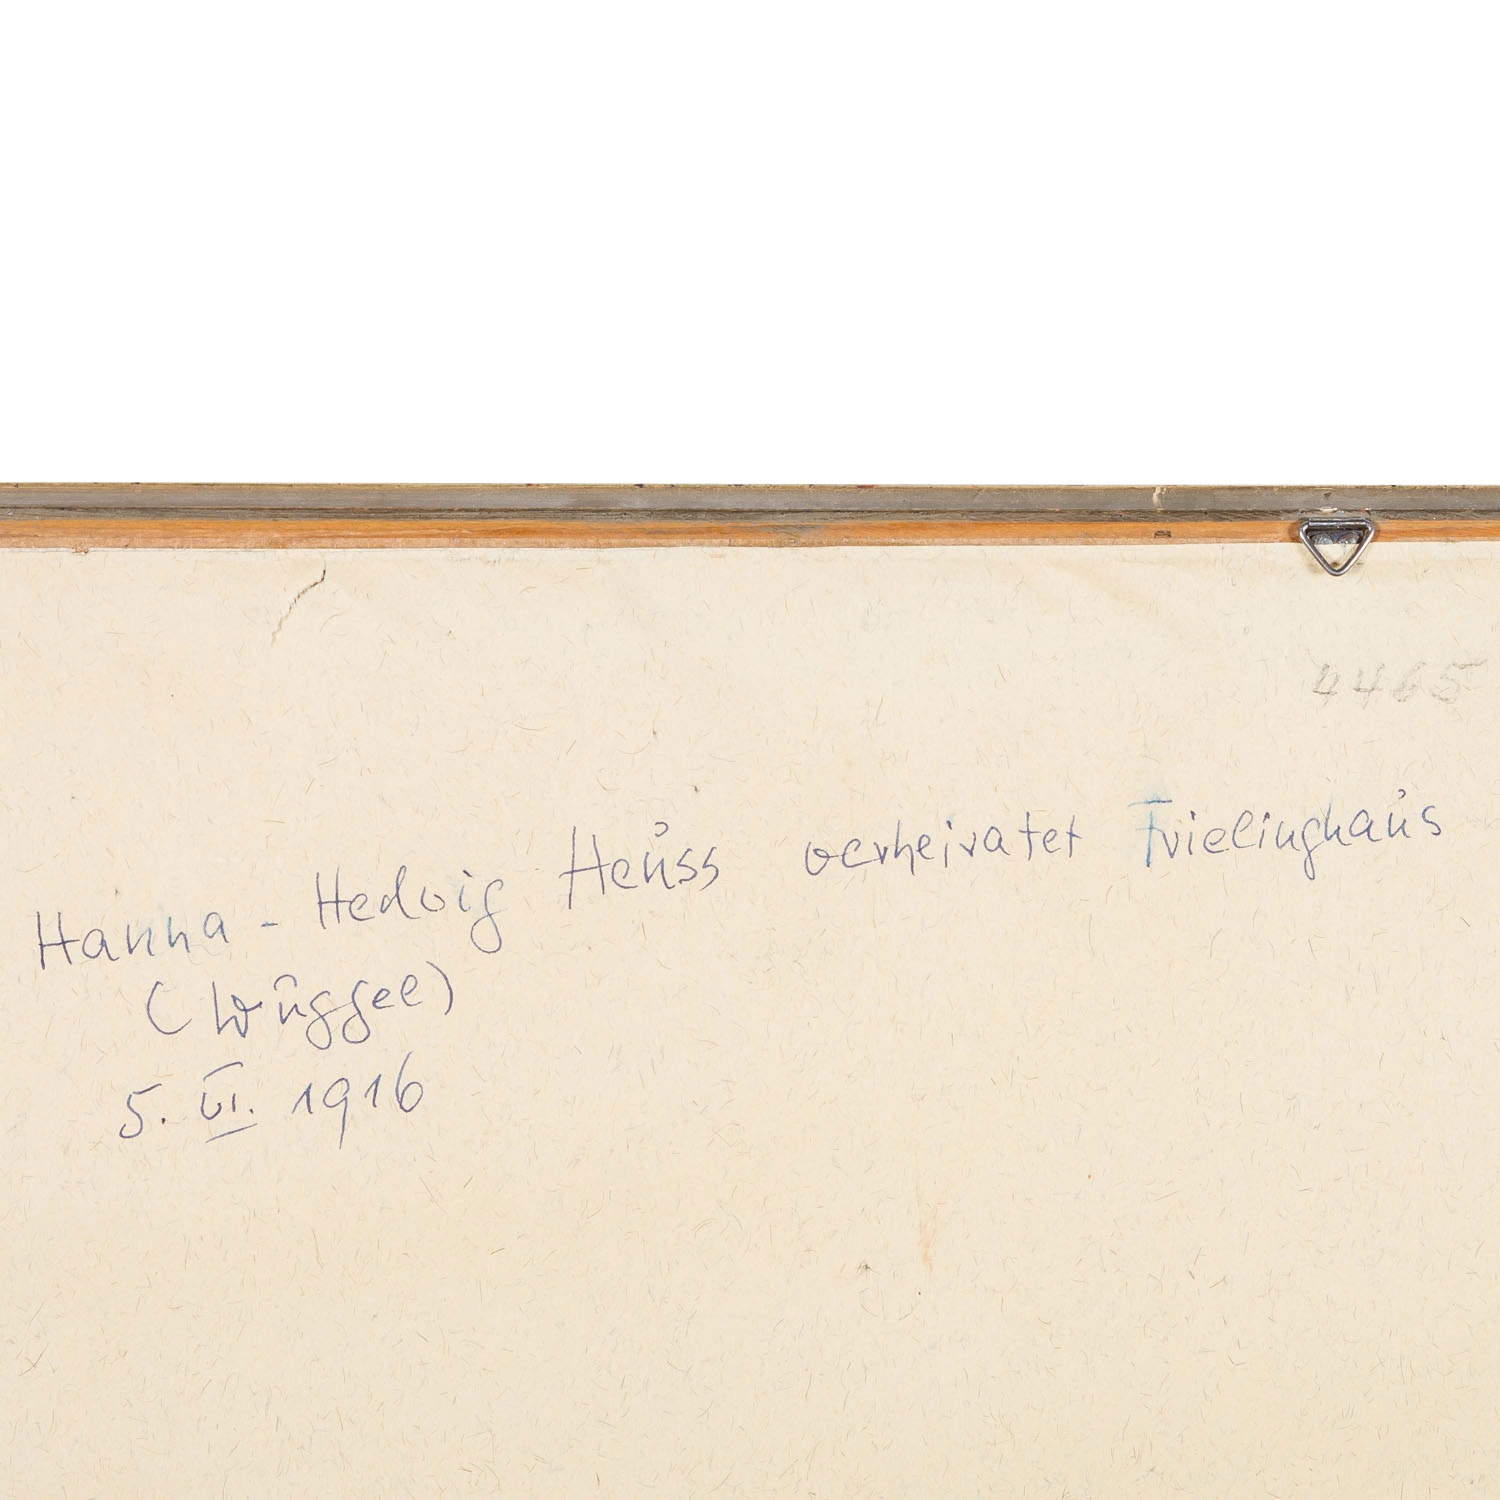 4465
Hanna - Hedwig Heuss verheiratet Frielinghaus
(Wuggel)
5. VI. 1916